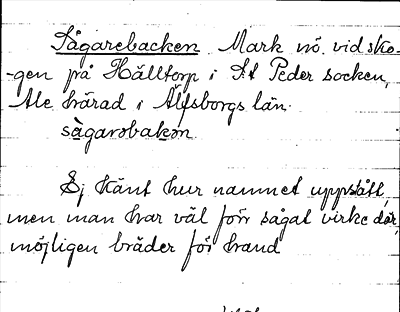 Sågarebacken Mark nö. vid sko-
-gen på Hälltorp i St Peder socken,
Ale härad i Älfsborgs län.
sågarəbakən
Ej känt hur namnet uppstått,
men man har väl förr sågat virke där,
möjligen bräder för hand